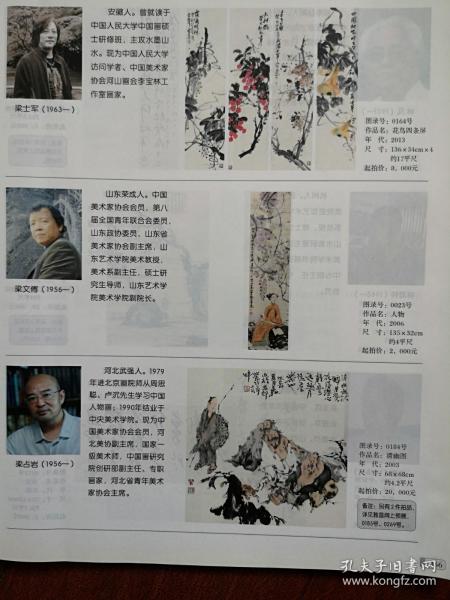 安徽人。曾就读于
中国人民大学中国画硕
士研修班，主攻水墨山
水。现为中国人民大学
访问学者、中国美术家
协会河山画会李宝林工
作室画家。
梁士军（1963—）
图录号：0164号
作品名：花鸟四条屏
年　代：2013
尺　寸：136×34cm×4
约17平尺
起拍价：8,000元
山东荣成人。中国
美术家协会会员，第八
届全国青年联合会委员，
山东政协委员，山东省
美术家协会副主席，山
东艺术学院美术教授，
美术系副主任，硕士研
究生导师，山东艺术学
院美术学院副院长。
梁文博（1956—）
图录号：0023号
作品名：人物
年　代：2006
尺　寸：135×32cm
约4平尺
起拍价：2,000元
河北武强人。1979
年进北京画院师从周思
聪、卢沉先生学习中国
人物画；1990年结业于
中央美术学院。现为中
国美术家协会会员，河
北美协副主席，国家一
级美术师，中国画研究
院创研部副主任、专职
画家，河北省青年美术
家协会主席。
梁占岩（1956—）
图录号：0184号
作品名：清幽图
年　代：2003
尺　寸：68×68cm
约4.2平尺
起拍价：20,000元
备注：另有2件拍品，
详见雅昌网上预展，
0185号、0269号。
孔夫子旧书网
www.kongfz.com